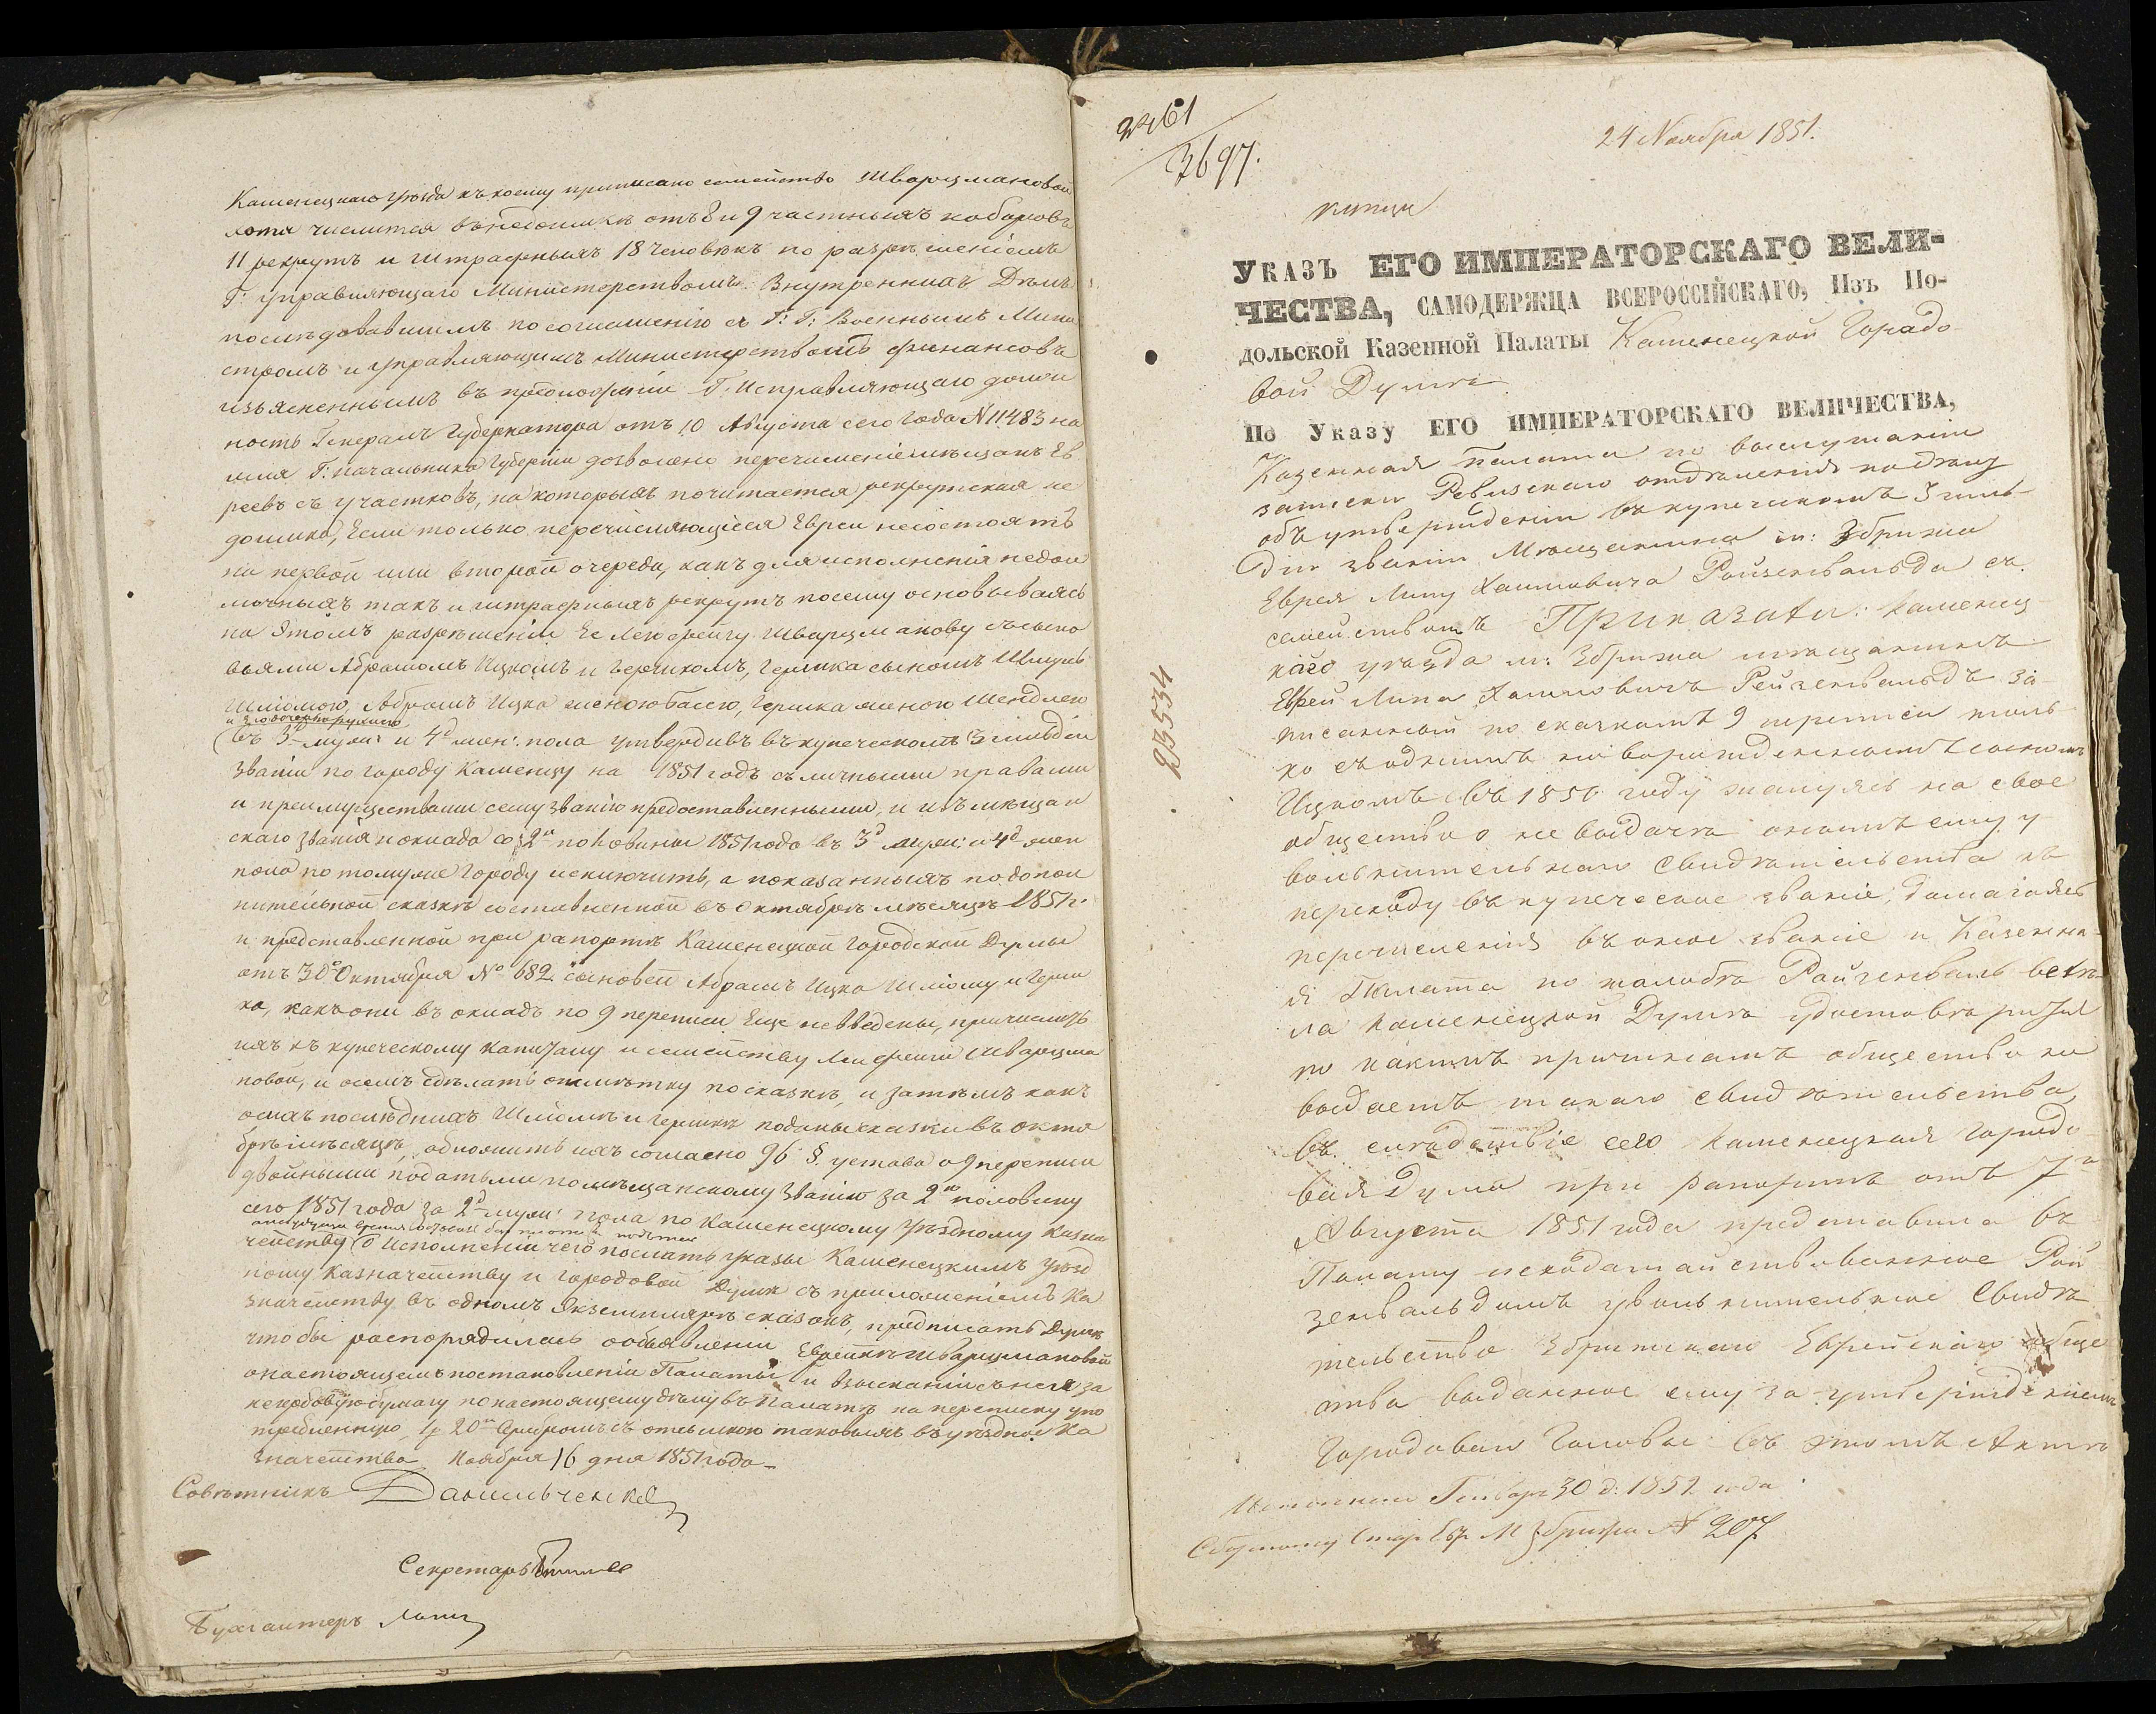 Каменецкаго уѣзда къ коему приписано семейство Шварцмановой
хотя числится въ недоимкѣ отъ 8 и 9 частныхъ наборовъ
11 рекрутъ и штрафныхъ 18 человѣкъ но разрѣшеніемъ
Г: управляющаго Министерствомъ Внутреннихъ Дѣлъ
послѣдовавшимъ по соглашенію съ Г: Г: Военнымъ Мини
стромъ и управляющимъ Министерствомъ финансовъ
изъясненнымъ въ предложеніи Г. Исправляющаго долж
ность Генералъ Губернатора отъ 10 Августа сего года N 11483 на
имя Г: начальника Губерніи дозволено перечисленіе мѣщанъ Ев
реевъ съ участковъ, на которыхъ почитается рекрутская не
доимка, Если только перечисляющіеся Евреи несостоятъ
на первой или второй очереди, какъ для исполненія недои
мочныхъ такъ и штрафныхъ рекрутъ посему основываясь
на этомъ разрѣшеніи Ее Шварцманову съ сыно
вьями Абрамомъ Ицкомъ и Гершкомъ, Гершка сыномъ
Шліомою, Абрамъ Ицка женою Басею, Гершка женою Шендлею
(въ 3д муж: и 4д жен: пола утвердивъ въ купеческомъ 3 гильдіи
званіи по городу Каменцу на 1851 годъ съ личными правами
и преимуществами сему званію предоставленными, и изъ мѣщан
скаго званія и оклада со 2й половины 1851 года въ 3д муж: и 4д жен
пола по томуже городу исключить, а показанныхъ по допол
нительной сказкѣ составленной въ Октябрѣ мѣсяцѣ 1851 г.
и представленной при рапортѣ Каменецкой Городской Думы
отъ 30го Октября № 682 сыновей Абрамъ Ицка Шліому и Герш
ка, какъ они въ окладъ по 9 переписи Еще не введены, причислить
ихъ къ купеческому капиталу и семейству Шварцма
новой, и осемъ сдѣлать отмѣтку по сказкѣ, и затѣмъ какъ
осихъ послѣднихъ Шліомѣ и Гершкѣ поданы сказки въ Октя
брѣ мѣсяцѣ, обложить ихъ согласно 96 §. устава о 9 переписи
двойными податьми по мѣщанскому званію за 2ю половину
сего 1851 года за 2д муж: пола по Каменецкому Уѣздному Казна
чейству О Исполненіи чего послать указы Каменецкимъ Уѣзд
ному Казначейству и Городовой Думѣ съ приложеніемъ Ка
значейству въ одномъ Экземплярѣ сказокъ, предписать Думѣ
чтобы распорядилась объявленіи Еврейкѣ Шварцмановой
онастоящемъ постановленіи Палаты и взысканіи съ нея за
негербовую бумагу по настоящему дѣлу въ Палатѣ на переписку упо
требленную, 1 р 20 к Серебромъ съ отсылкою таковыхъ въ уѣздное Ка
значейство Ноября 16 дня 1851 года
Совѣтникъ Данильченко
Секретарь
Бухгалтеръ
3697.
24 Ноября 1851.
купцы
Указъ ЕГО ИМПЕРАТОРСКАГО ВЕЛИ-
ЧЕСТВА, САМОДЕРЖЦА ВСЕРОССІЙСКАГО, Изъ По-
дольской Казенной Палаты Каменецкой Городо
вой Думѣ
По Указу ЕГО ИМПЕРАТОРСКАГО ВЕЛИЧЕСТВА,
Казенная Палата по выслушаніи
записки Ревизскаго отдѣленія по дѣлу
объ утвержденіи въ купеческомъ 3 гиль-
діи званіи Мѣщанина м: Збрижа
Еврея Липу Хаимовича Ройзенвальда съ
семействомъ Приказали: Каменец
каго уѣзда м: Збрижа мѣщанинъ
Еврей Липа Хаимовичъ Ройзенвальдъ за-
писанный по сказкамъ 9 переписи толь
ко съ однимъ новорожденнымъ сыномъ
Ицкомъ въ 1850 году жалуясь на свое
общество о не выдачѣ онымъ ему у
вольнительнаго свидѣтельства къ
переходу въ купеческое званіе, домагался
перечисленія въ оное званіе и Казенна
я Палата по жалобѣ Ройзенвальда велѣ
ла Каменецкой Думѣ удостовѣриться
по какимъ причинамъ общество не
выдаетъ такаго свидѣтельства,
въ слѣдствіе сего Каменецкая Городо
вая Дума при рапортѣ отъ 7го
Августа 1851 года представила въ
Палату исходатайствованное Рой
зенвальдомъ увольнительное свидѣ
тельство Збрижскаго Еврейскаго обще
ства выданное ему за утвержденіемъ
Городовой Головы: въ этомъ Актѣ
Генваря 30 д: 1852 года
Збрижа № 207
23534